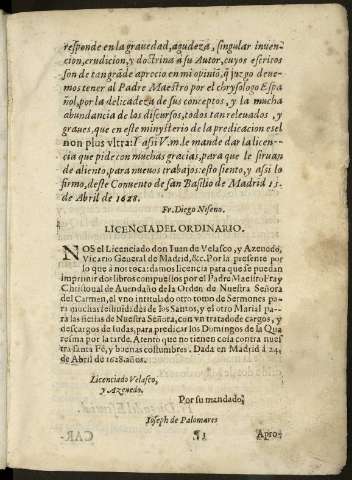 responde en la grauedad, agudeza, singular inuen-
cion, erudicion, y doctrina a su Autor, cuyos escritos
son de tan grãde aprecio en mi opinio, q̃ juzgo deue-
mos tener al Padre Maestro por el chrysologo Espa
ñol, por la delicadeza de sus conceptos, y la mucha
abundancia de los discursos, todos tan releuados, y
graues, que en este minysterio de la predicacion es el
non plus vltra: I assi V. m. le mande dar la licen-
cia que pide con muchas gracias, para que le siruan
de aliento, para nueuos trabajos: esto siento, y asi lo
firmo, deste Conuento de san Basilio de Madrid 15.
de Abril de 1628.
Fr. Diego Niseno.
LICENCIA DEL ORDINARIO.
NOS el Licenciado don Iuan de Velasco, y Azeuedo,
Vicario General de Madrid, &c. Por la presente por
lo que a nos toca: damos licencia para que se puedan
imprimir dos libros compuestos por el Padre Maestro Fray
Christoual de Auendaño de la Orden de Nuestra Señora
del Carmen, el vno intitulado otro tomo de Sermones pa-
ra muchas festiuidades de los Santos, y el otro Marial pa-
ra las fiestas de Nuestra Señora, con vn tratado de cargos, y
descargos de Iudas, para predicar los Domingos de la Qua
resma por la tarde. Atento que no tienen cosa contra nues
tra santa Fé, y buenas costumbres. Dada en Madrid à 24.
de Abril de 1628. años.
Licenciado Velasco,
y Azeuedo.
Por su mandado,
Ioseph de Palomares
¶ 3 Apro-